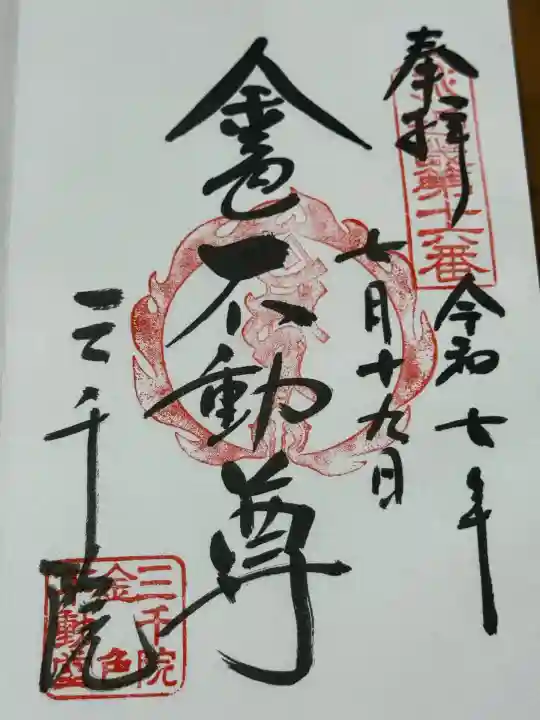 奉拝
第十六番
令和七年
七月十九日
金色不動尊
三千院
三千院
金色
不動堂